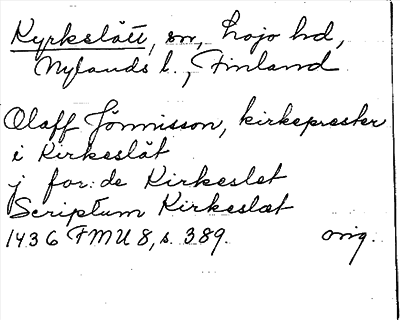 Kyrkslätt, sn, Lojo hd,
Nylands l., Finland
Olaff Jönnisson, kirkeprester
i Kirkeslät
j for: de Kirkeslet
Scriptum Kirkeslæt
1436 FMU 8, s. 389. orig.